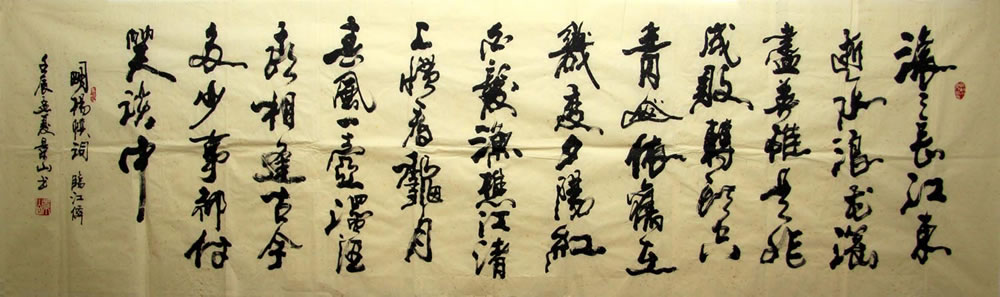 滚滚长江东
逝水浪花淘
尽英雄是非
成败转头空
青山依旧在
几度夕阳红
白发渔樵江渚
上惯看秋月
春风一壶浊酒
喜相逢古今
多少事都付
笑谈中
明杨慎词临江仙
壬辰年夏景山书